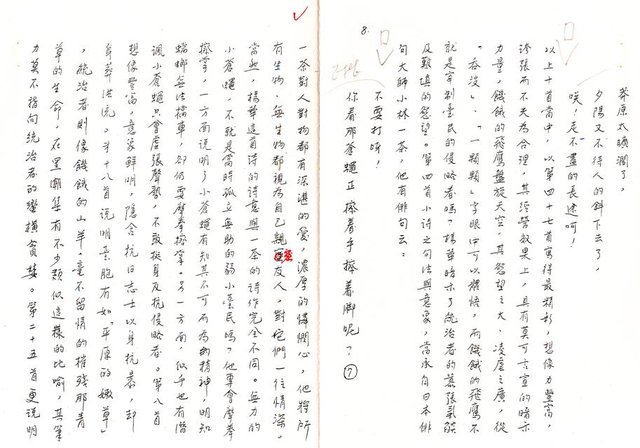 8.
莽原太曠潤了，
夕陽又不待人的斜下去了，
唉，走不盡的長途呵！
以上十首當中，以第四十七首寫得最精彩，想像力豐高，
誇張而不失為合理，其經營效果上，具有莫可言宣的暗示
力量，饑餓的飛鷹盤旋天空，其慾望之大，凌虐之廣，從
「吞沒」、「一顆顆」字眼中可以體悟，而饑餓的飛鷹不
就是宰制臺民的侵略者嗎？楊華暗示了統治者的囂張剝削
及難填的慾望。第四首小詩之句法與意象，當承自日本俳
句大師小林一茶，他有俳句云：
不要打呀！
你看那蒼蠅正搓着手搓着脚呢？⑦
一茶對人對物都有深湛的愛，濃厚的憐憫心，他將所
有生物、無生物都視為自己親密友人，對它們一往情深。
當然，楊華這首詩的詩意與一茶的詩作完全不同。無力的
小蒼蠅，不就是當時孤立無助的弱小臺民嗎？他要會摩拳
擦掌，一方面說明了小蒼蠅有知其不可而為的精神，明知
蝙蝠無法撲單，卻仍要摩拳擦掌。另一方面，似乎也有譏
諷小蒼蠅只會虛張聲勢，不敢挺身反抗侵略者。第八首
想像豐富，意象鮮明，隱含抗日志士以身抗暴，卻
身葬洪流。第十八首說明臺胞有如「平原的嫩草」
，統治者則像饑餓的山羊，毫不留情的摧殘那青
草的生命，在黑潮集有不少類似這樣的比喻，其筆
力莫不指向統治者的蠻橫貪婪。第二十五首更說明